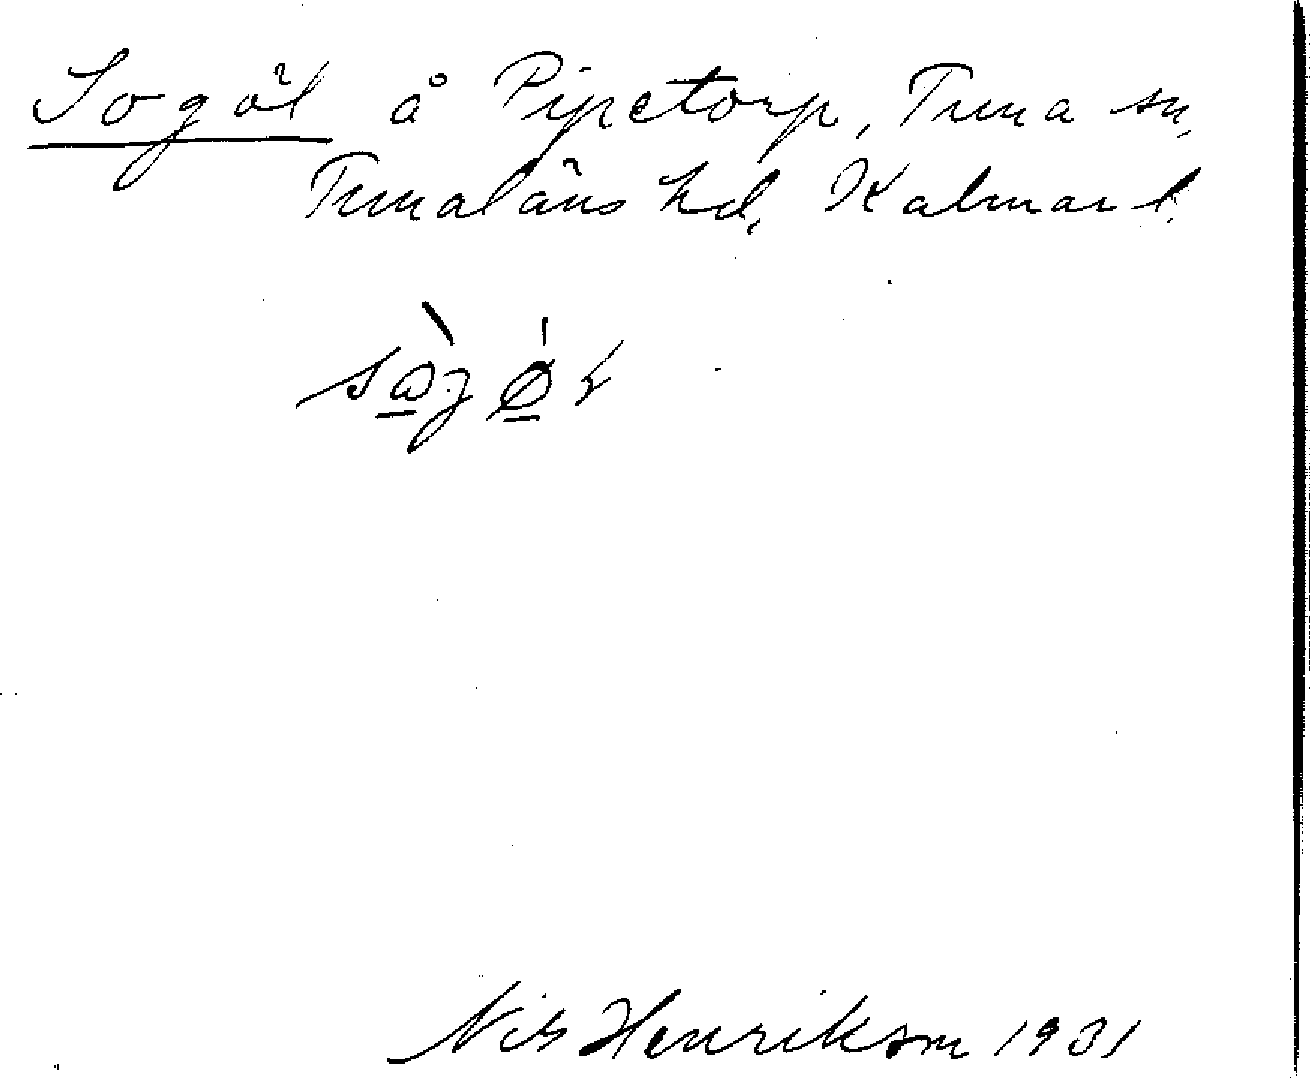 Sogöl å Pipetorp, Tuna sn,
Tunaläns hd, Kalmar l.
Nils Henriksson 1931